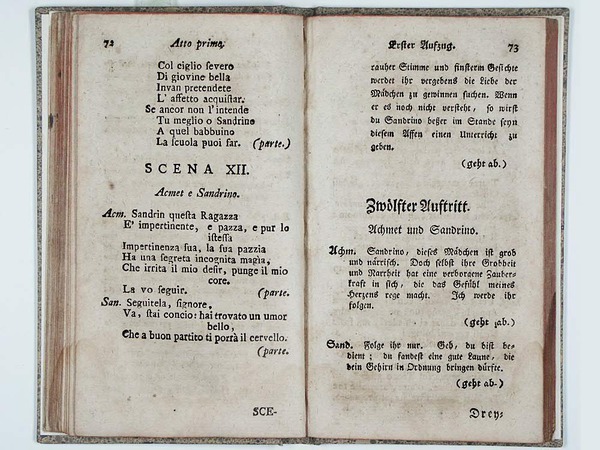 72 Atto primo.
Col ciglio ſevero
Di giovine bella
Invan pretendete
L' affetto acquiſtar.
Se ancor non l'intende
Tu meglio o Sandrino
A quel babbuino
La ſcuola puoi far. (parte.)
SCENA XII.
Acmet e Sandrino.
Acm. Sandrin queſta Ragazza
E' impertinente, e pazza, e pur lo
iſteſſa
Impertinenza ſua, la ſua pazzia
Ha una ſegreta incognita magìa,
Che irrita il mio deſir, punge il mio
core.
La vo ſeguir. (parte.
San. Seguitela, ſignore,
Va, ſtai concio: hai trovato un umor
bello,
Che a buon partito ti porrà il cervello.
(parte.
SCE-
Erſter Aufzug. 73
rauher Stimme und finſterm Geſichte
werdet ihr vergebens die Liebe der
Mädchen zu gewinnen ſuchen. Wenn
er es noch nicht verſteht, ſo wirſt
du Sandrino beßer im Stande ſeyn
dieſem Affen einen Unterricht zu
geben.
(geht ab.)
Zwölfter Auftritt.
Achmet und Sandrino.
Achm. Sandrino, dieſes Mädchen iſt grob
und närriſch. Doch ſelbſt ihre Grobheit
und Narrheit hat eine verborgene Zauber-
kraft in ſich, die das Gefühl meines
Herzens rege macht. Ich werde ihr
folgen.
(geht ab.)
Sand. Folge ihr nur. Geh, du biſt be-
dient; du fandeſt eine gute Laune, die
dein Gehirn in Ordnung bringen dürfte.
(geht ab.)
Drey-